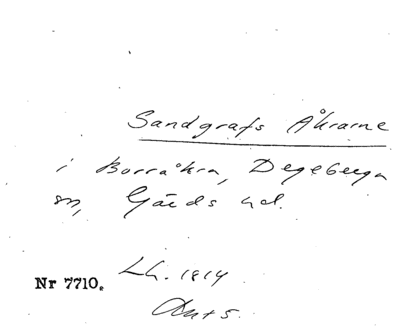 Sandgrafs Åkrarne
i Borråkra, Degeberga
sn, Gärds hd.
Nr 7710. Lh. 1819